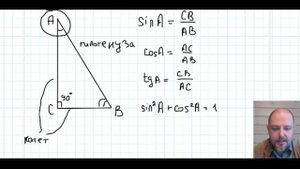 A
гипотенуза
90°
C
B
катет
sin A = CB/AB
cos A = AC/AB
tg A = CB/AC
sin²A + cos²A = 1